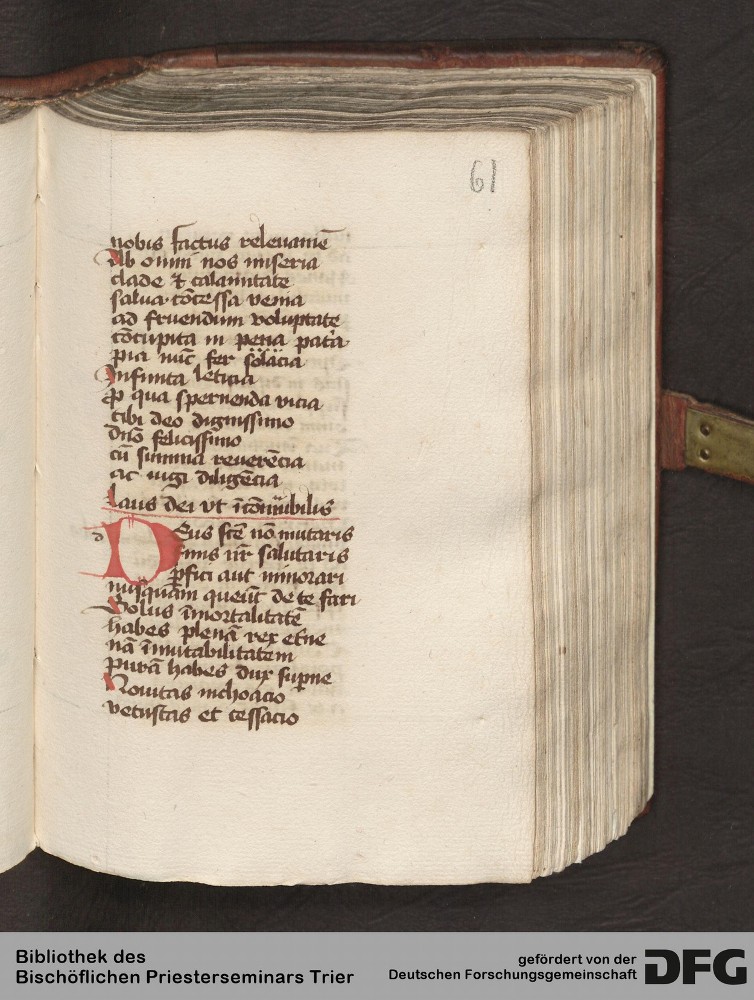 61
nobis factus releuamē
Ab omni nos miseria
clade & calamitate
salua cōcessa venia
ad fruendum voluptate
cōcupita in pena
pia nūc fer solacia
Infinita leticia
ꝓ qua spernenda vicia
tibi deo dignissimo
dn̄o felicissimo
cū summa reuerēcia
ac iugi diligēcia
Laus dei vt
d
DEus scē nō mutaris
finis nr̄ salutaris
ꝑfici aut minorari
nusquam queūt de te fari
Solus īmortalitatē
habes plenā rex etn̄e
nā īmutabilitatem
purā habes dux suꝑne
Nouitas inchoacio
vetustas et cessacio
Bibliothek des
Bischöflichen Priesterseminars Trier
gefördert von der
Deutschen Forschungsgemeinschaft DFG